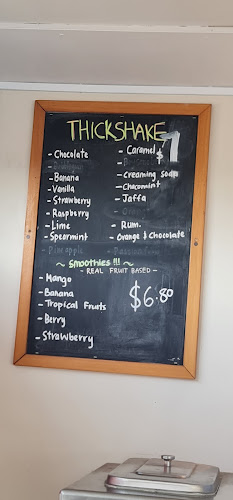 THICKSHAKE
$7
- Chocolate
- Banana
- Vanilla
- Strawberry
- Raspberry
- Lime
- Spearmint
- Pineapple
- Caramel
- Creaming soda
- Chocomint
- Jaffa
- Rum.
- Orange & Chocolate
~ Smoothies !!! ~
- REAL FRUIT BASED -
- Mango
- Banana
- Tropical Fruits
- Berry
- Strawberry
$6.80